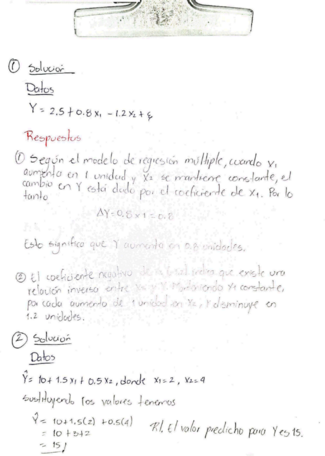 ① Solución
Datos
Y = 2.5 + 0.8 x₁ - 1.2 x₂ + ε
Respuestas
① Según el modelo de regresión múltiple, cuando x₁
aumenta en 1 unidad y x₂ se mantiene constante, el
cambio en Y está dado por el coeficiente de x₁. Por lo
tanto
ΔY = 0.8 x 1 = 0.8
Esto significa que Y aumenta en 0.8 unidades.
② El coeficiente negativo de que existe una
relación inversa entre x₂ y Y. Manteniendo x₁ constante,
por cada aumento de 1 unidad en x₂, Y disminuye en
1.2 unidades.
② Solución
Datos
Ŷ = 10 + 1.5 x₁ + 0.5 x₂, donde x₁ = 2, x₂ = 4
sustituyendo los valores tenemos
Ŷ = 10 + 1.5(2) + 0.5(4)
= 10 + 3 + 2
= 15
R/. El valor predicho para Y es 15.